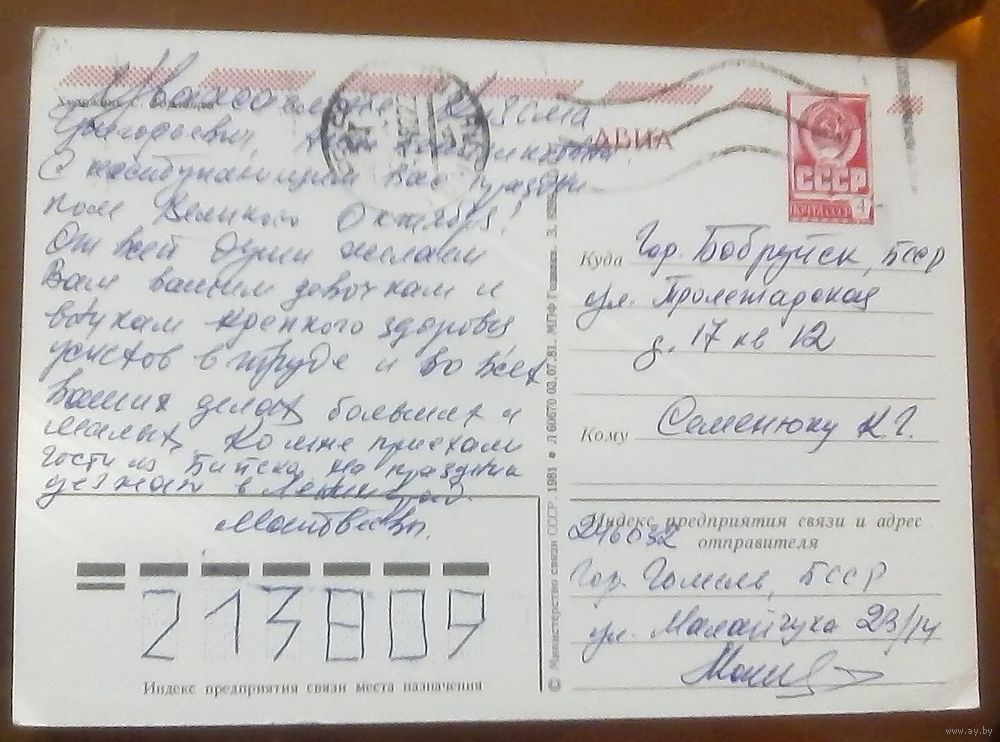 Уважаемые Кузьма
Григорьевич,
С наступающим Вас праздни
ком Великого Октября!
От всей души желаем
Вам вашим девочкам и
внукам крепкого здоровья
успехов в труде и во всех
ваших делах больших и
малых. Ко мне приехали
гости из Бийска на праздник
уезжаем в Ленинград.
Матвеевы.
213809
Индекс предприятия связи места назначения
© Министерство связи СССР. 1981 ● Л 60670 03.07.81. МПФ Гознака. З.
АВИА
СССР
ПОЧТА СССР 4
Куда Гор. Бобруйск, БССР
ул. Пролетарская
д. 17 кв 12
Кому Семенюку К Г.
Индекс предприятия связи и адрес
отправителя
246032
Гор. Гомель, БССР
ул. Малайчука 23/14
www.ay.by